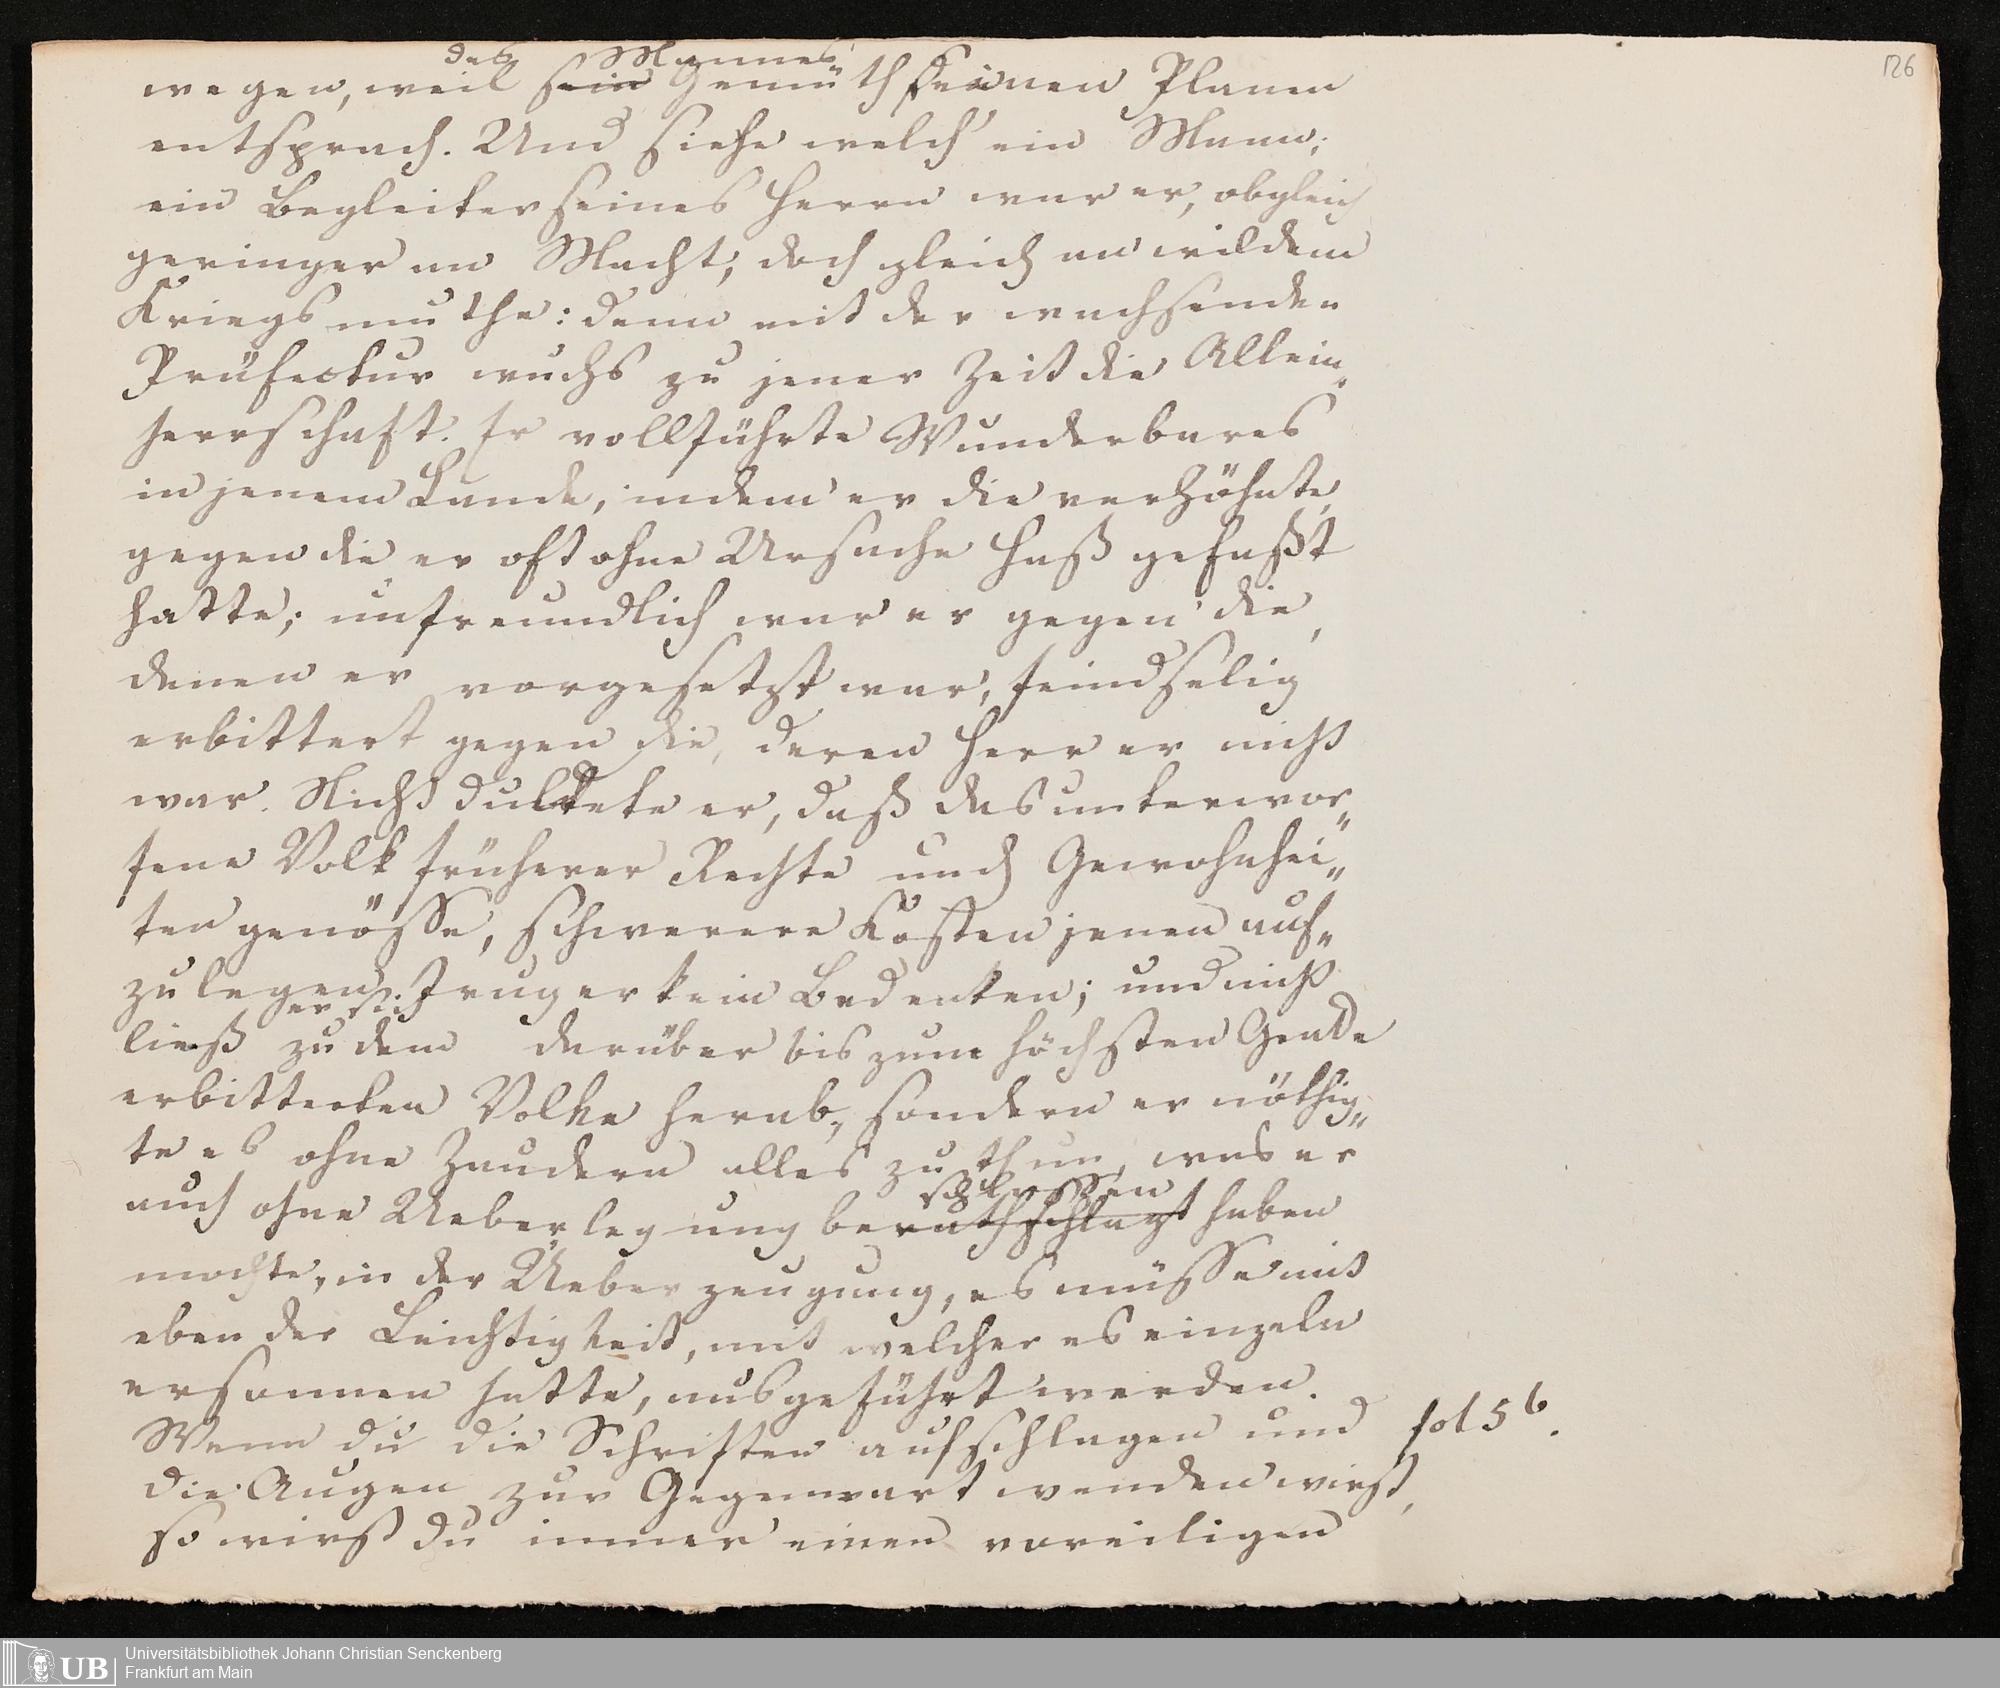 126
des Mannes
wegen, weil sein Gemüth seinen Planen
entsprach. Und siehe welch' ein Mann;
ein Begleiter seines Herrn war er, obgleich
geringer an Macht, doch gleich an wildem
Kriegsmuthe: denn mit der wachsenden
Präfectur wuchs zu jener Zeit die Allein„
herrschaft. Er vollführte Wunderbares
in jenem Lande, indem er die verhöhnte,
gegen die er oft ohne Ursache Haß gefaßt
hatte; unfreundlich war er gegen die,
denen er vorgesetzt war, feindselig
erbittert gegen die, deren Herr er nicht
war. Nicht duldete er, daß das unterwor„
fene Volk früherer Rechte und Gewohnhei„
ten genösse, schwerere Kosten jenen auf„
zulegen, trug er kein Bedenken; und nicht
er sich
ließ zu dem darüber bis zum höchsten Grade
erbitterten Volke herab, sondern er nöthig„
te es ohne Zaudern alles zu thun, was er
schlossen
auch ohne Ueberlegung berathschlagt haben
mochte, in der Ueberzeugung, es müsse mit
eben der Leichtigkeit, mit welcher es einzeln
ersonnen hatte, ausgeführt werden.
Wenn du die Schriften aufschlagen und
fol 5 b.
die Augen zur Gegenwart wenden wirst,
so wirst du immer einen voreiligen
UB
Universitätsbibliothek Johann Christian Senckenberg
Frankfurt am Main